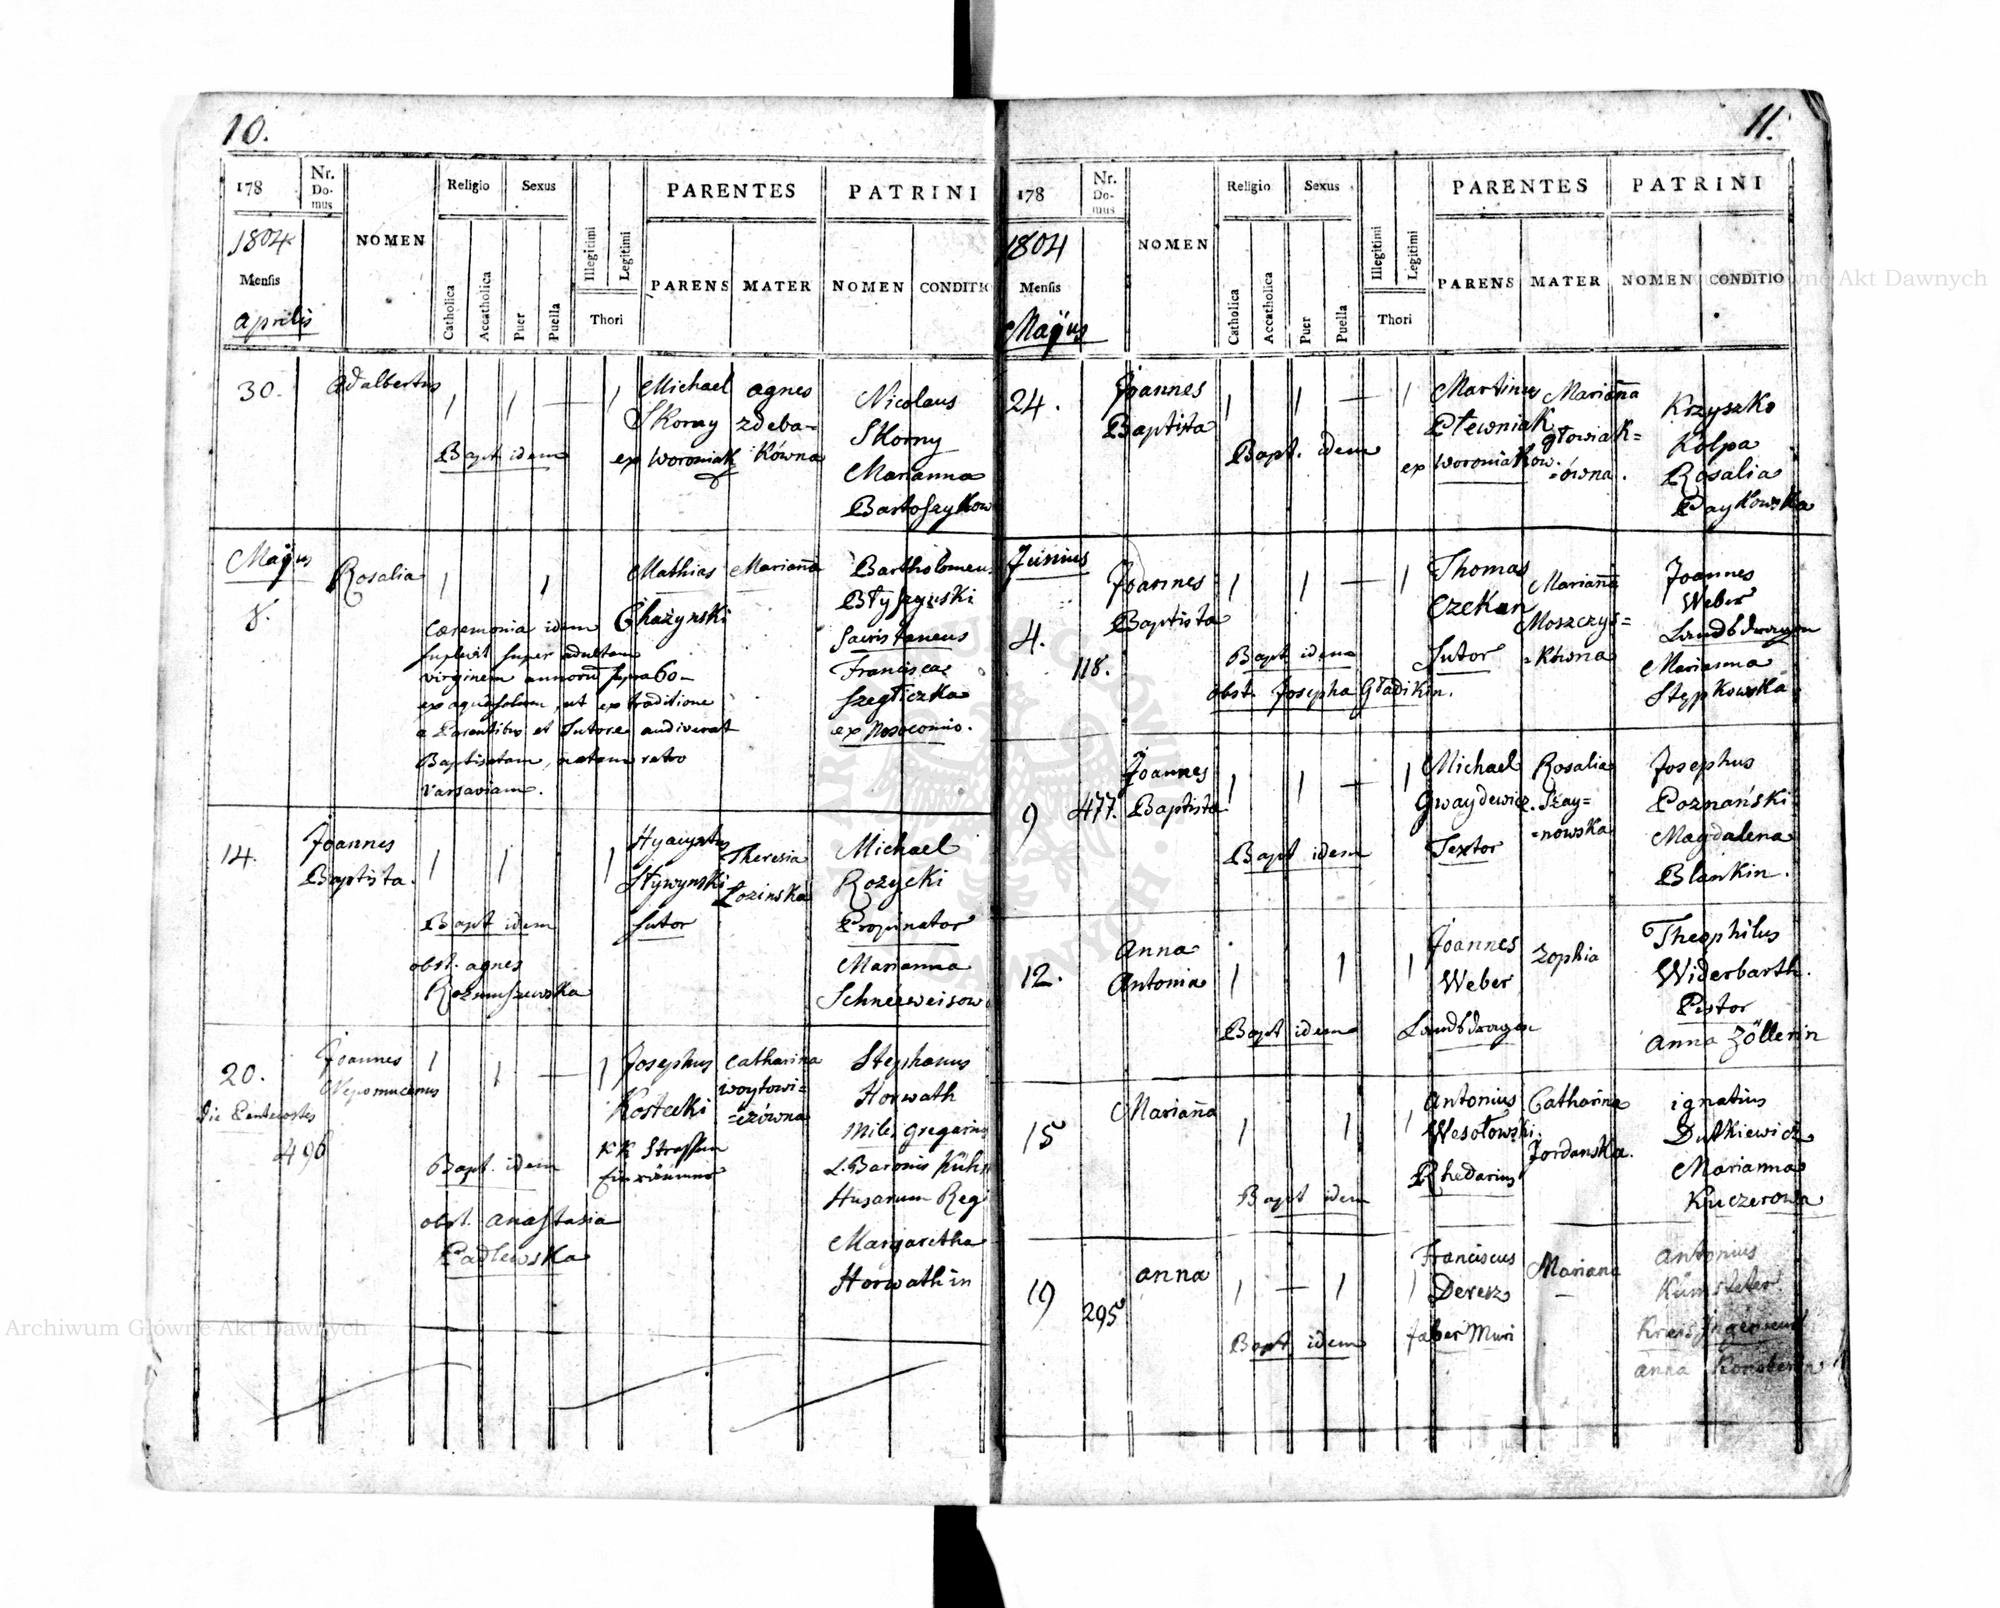 10.
178
Nr. Domus
NOMEN
Religio
Sexus
PARENTES
PATRINI
1804
Mensis
Aprilis
Catholica
Accatholica
Puer
Puella
Illegitimi
Legitimi
Thori
PARENS
MATER
NOMEN
CONDITIO
30.
Adalbertus
Michael
Skorny
ex Woroniak
agnes
zdeba=
kówna
Nicolaus
Skorny
Marianna
Bartoszykow
Bapt idem
Majus
8.
Rosalia
Mathias
Chażynski
Marianna
Bartholomeus
Błyszczuski
Sacristaneus
Francisca
Szegliczka
ex Nosocomio.
Cæremonia idem
suplevit super adultam
virginem annorũ supra 60
ut ex traditione
a Parentibus et Tutore audiverat
Baptisatam, natam retro
Varsaviam.
14.
Joannes
Baptista.
Hyacyntus
Stywynski
Sutor
Theresia
Łozinska
Michael
Rozycki
Propinator
Marianna
Schneeweisow
Bapt idem
obst. agnes
20.
Die Pentecostes
496
Joannes
Nepomucenus
Josephus
Kostecki
KK Strassen
Einräumer
Catharina
woytowi=
=czówna
Stephanus
Horwath
Miles gregarius
L. Baronis Kühn
Husarum Reg
Margaretha
Horwathin
Bapt. idem
obst. anastasia
Padlewska
11.
178
Nr. Domus
NOMEN
Religio
Sexus
PARENTES
PATRINI
1804
Mensis
Majus
Catholica
Accatholica
Puer
Puella
Illegitimi
Legitimi
Thori
PARENS
MATER
NOMEN
CONDITIO
24.
Joannes
Baptista
Martinus
Plewniak
ex Woroniakow.
Marianna
głowiak=
=ówna.
Krzyszko
Kolpa
Rosalia
Daykowska
Bapt. idem
Junius
4.
118.
Joannes
Baptista
Thomas
Czekan
Sutor
Marianna
Moszczys=
=kówna
Joannes
Weber
Landsdragon
Marianna
Stępkowska
Bapt idem
obst. Josepha Gładikin.
9
477.
Joannes
Baptista
Michael
Gwaydewicz.
Textor
Rosalia
Szay=
=nowska
Josephus
Poznański
Magdalena
Blankin.
Bapt idem
12.
Anna
Antonia
Joannes
Weber
Landsdragon
Zophia
Theophilus
Widerbarth.
Pistor
Anna Zöllerin
Bapt idem
15
Marianna
Antonius
Wesołowski.
Rhedarius
Catharina
Jordanska.
ignatius
Dutkiewicz
Marianna
Kuczerowa
Bapt idem
19
295
anna
Franciscus
Derecz
faber Muri
Mariana
Antonius
Kreis Ingenieur
anna
Bapt idem
Archiwum Główne Akt Dawnych